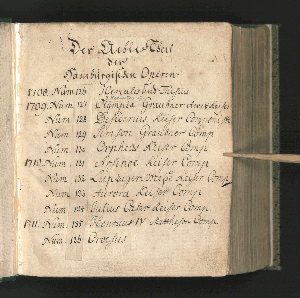 Der Achte Theil
der
Hamburgischen Operen
1708. Num 126 Hercules und Theseus
1709. Num. 127 Olympia Graupner Keiser
Num 128 Desiderius Keiser Comp
Num 129 Simson Graupner Comp
Num 130 Orpheus Keiser Comp
1710. Num 131 Arsinoe Keiser Comp
Num 132 Leipziger Messe Keiser Comp
Num 133 Aurora Keiser Comp
Num 134 Julius Caesar Keiser Comp
1711. Num. 135 Henricus IV Mattheson Comp.
Num 136 Croesus